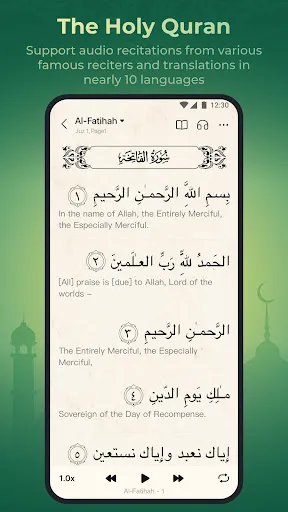 The Holy Quran
Support audio recitations from various
famous reciters and translations in
nearly 10 languages
12:30
Al-Fatihah
Juz 1, Page1
سُورَةُ الفَاتِحَةِ
بِسمِ اللَّهِ الرَّحمـٰنِ الرَّحيمِ ﴿١﴾
In the name of Allah, the Entirely Merciful,
the Especially Merciful.
الحَمدُ لِلَّهِ رَبِّ العـٰلَمينَ ﴿٢﴾
[All] praise is [due] to Allah, Lord of the
worlds –
الرَّحمـٰنِ الرَّحيمِ ﴿٣﴾
The Entirely Merciful, the Especially
Merciful,
مـٰلِكِ يَومِ الدّينِ ﴿٤﴾
Sovereign of the Day of Recompense.
إِياكَ نَعبُدُ وَإِياكَ نَستَعينُ ﴿٥﴾
1.0x
Al-Fatihah - 1